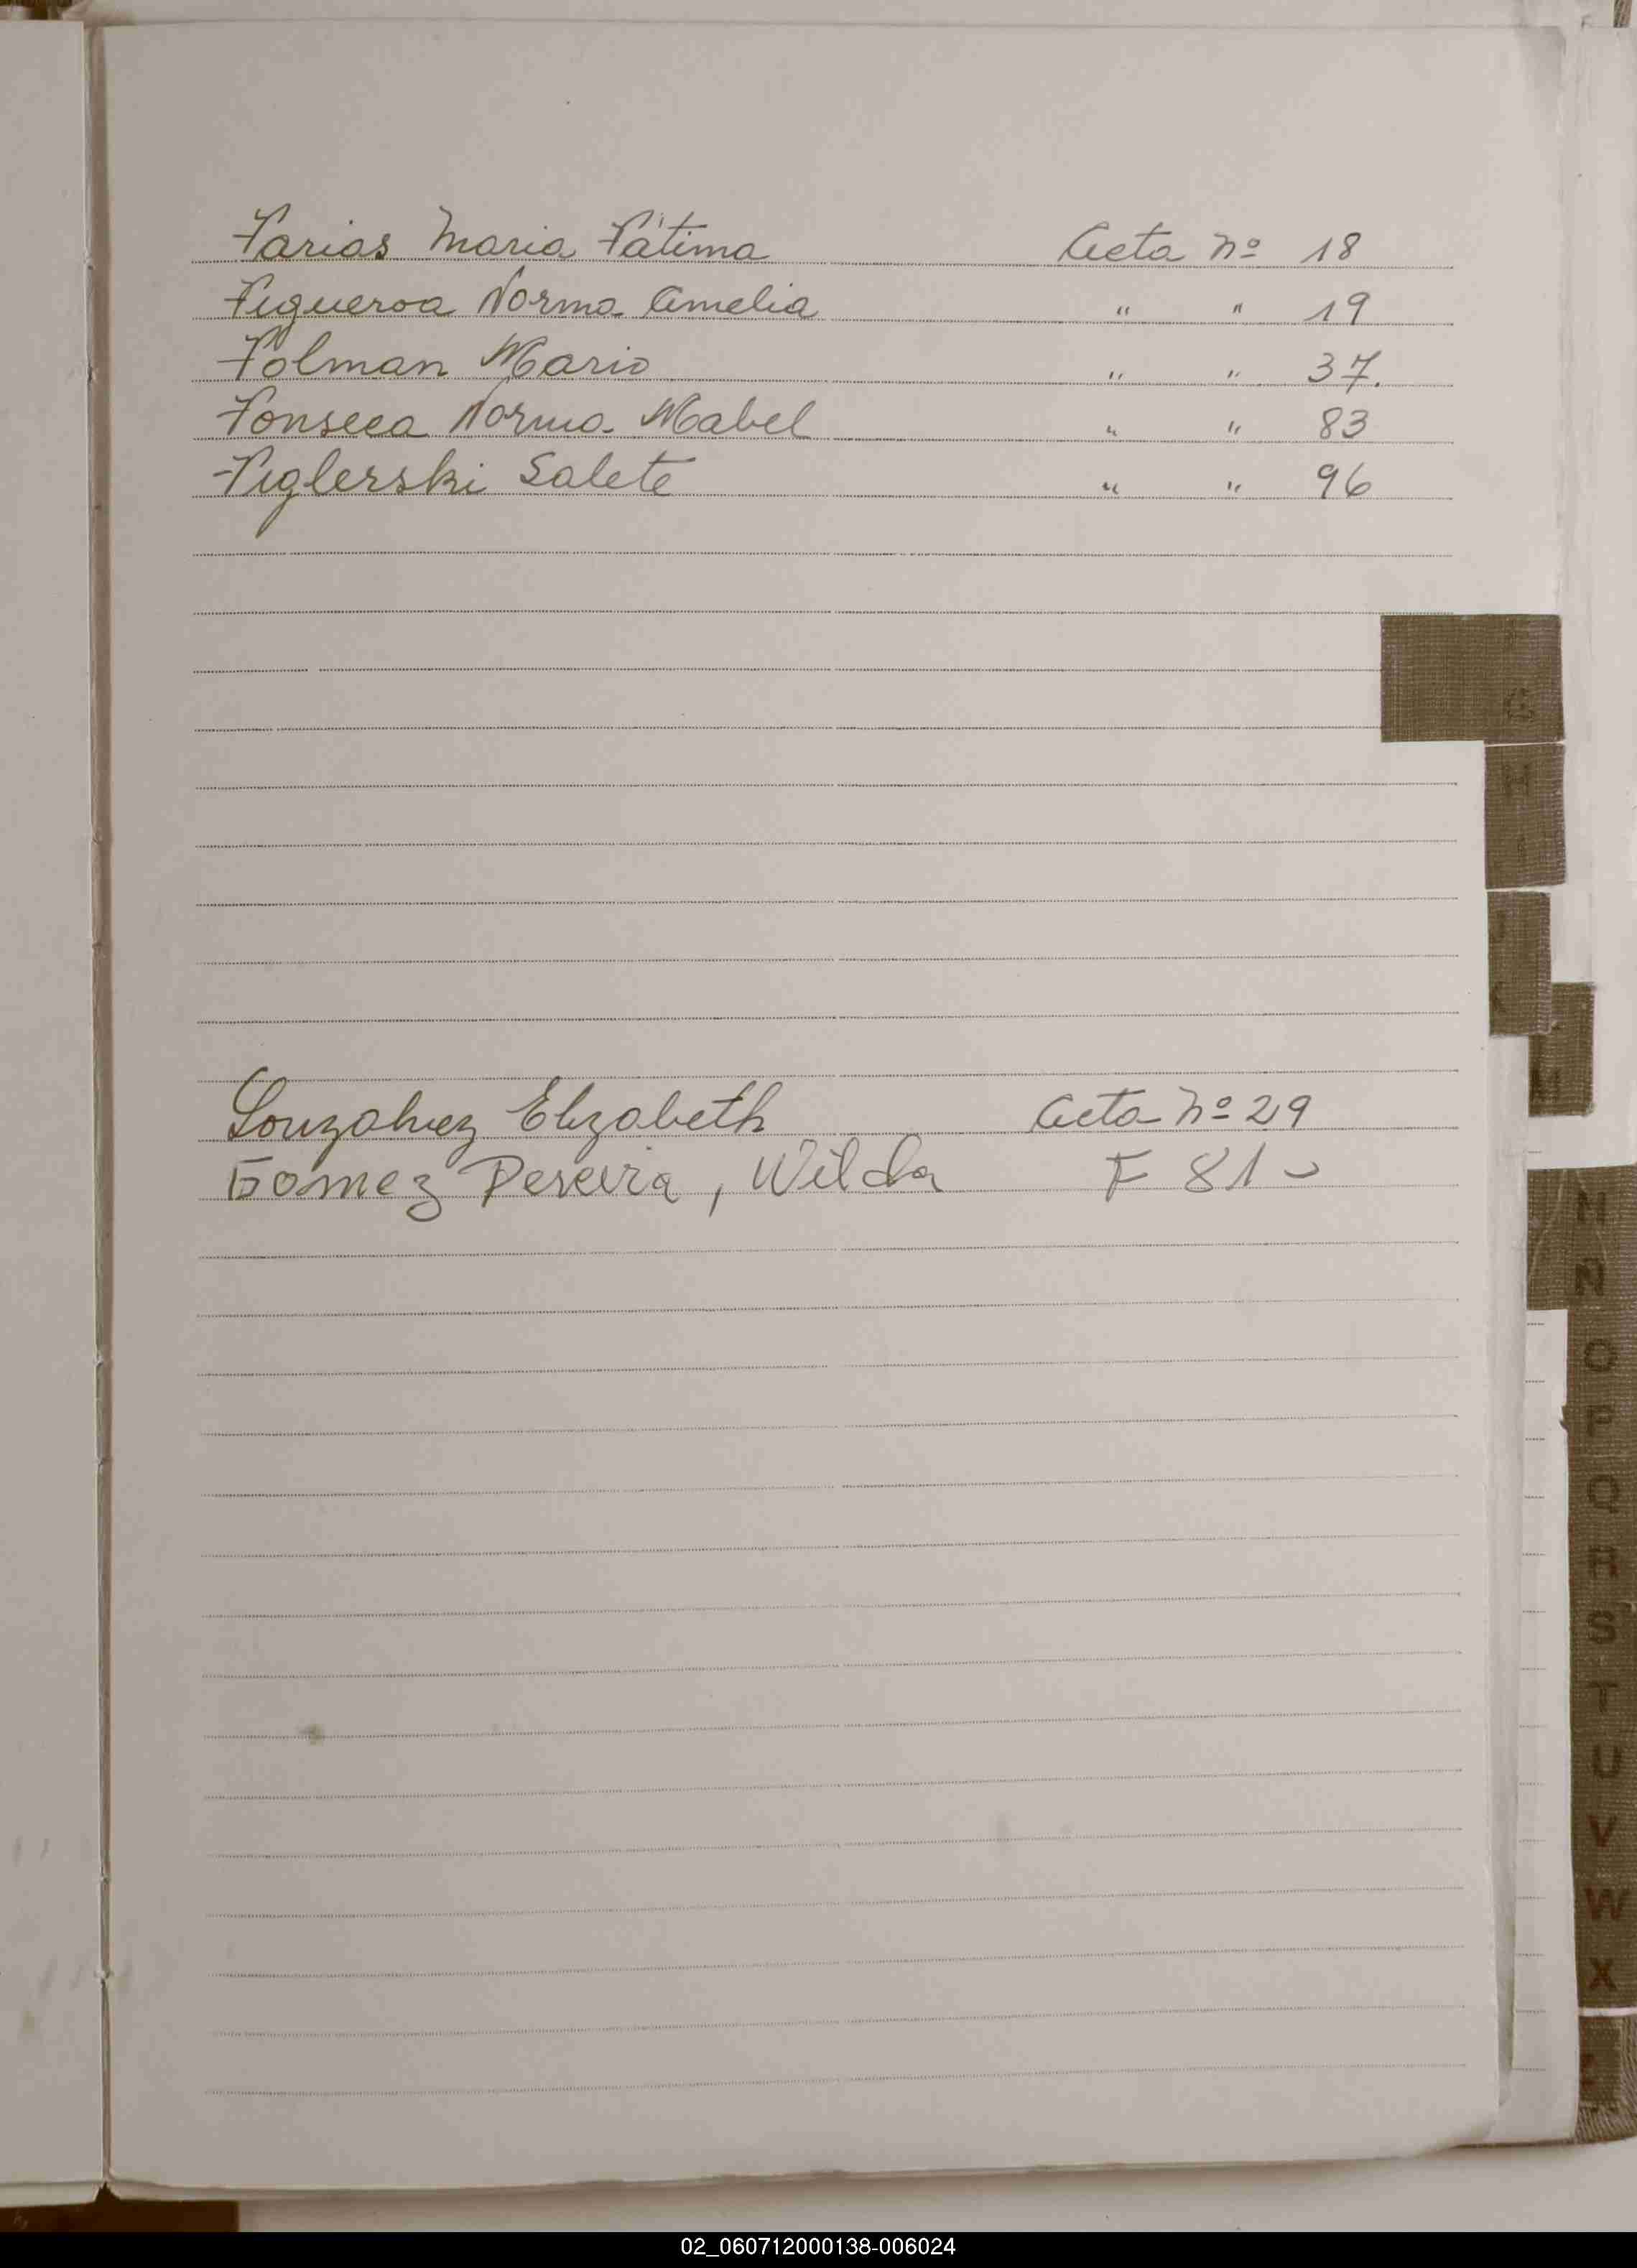 Farias Maria Fátima Acta Nº 18
Figueroa Norma Amelia " " 19
Folman Mario " " 37.
Fonseca Norma Mabel " " 83
Figlerski Salete " " 96
G
H
I
J
K
Gonzalvez Elizabeth Acta Nº 29
Gomez Pereira, Wilda F 81
M
N
O
P
Q
R
S
T
U
V
W
X
Z
02_060712000138-006024